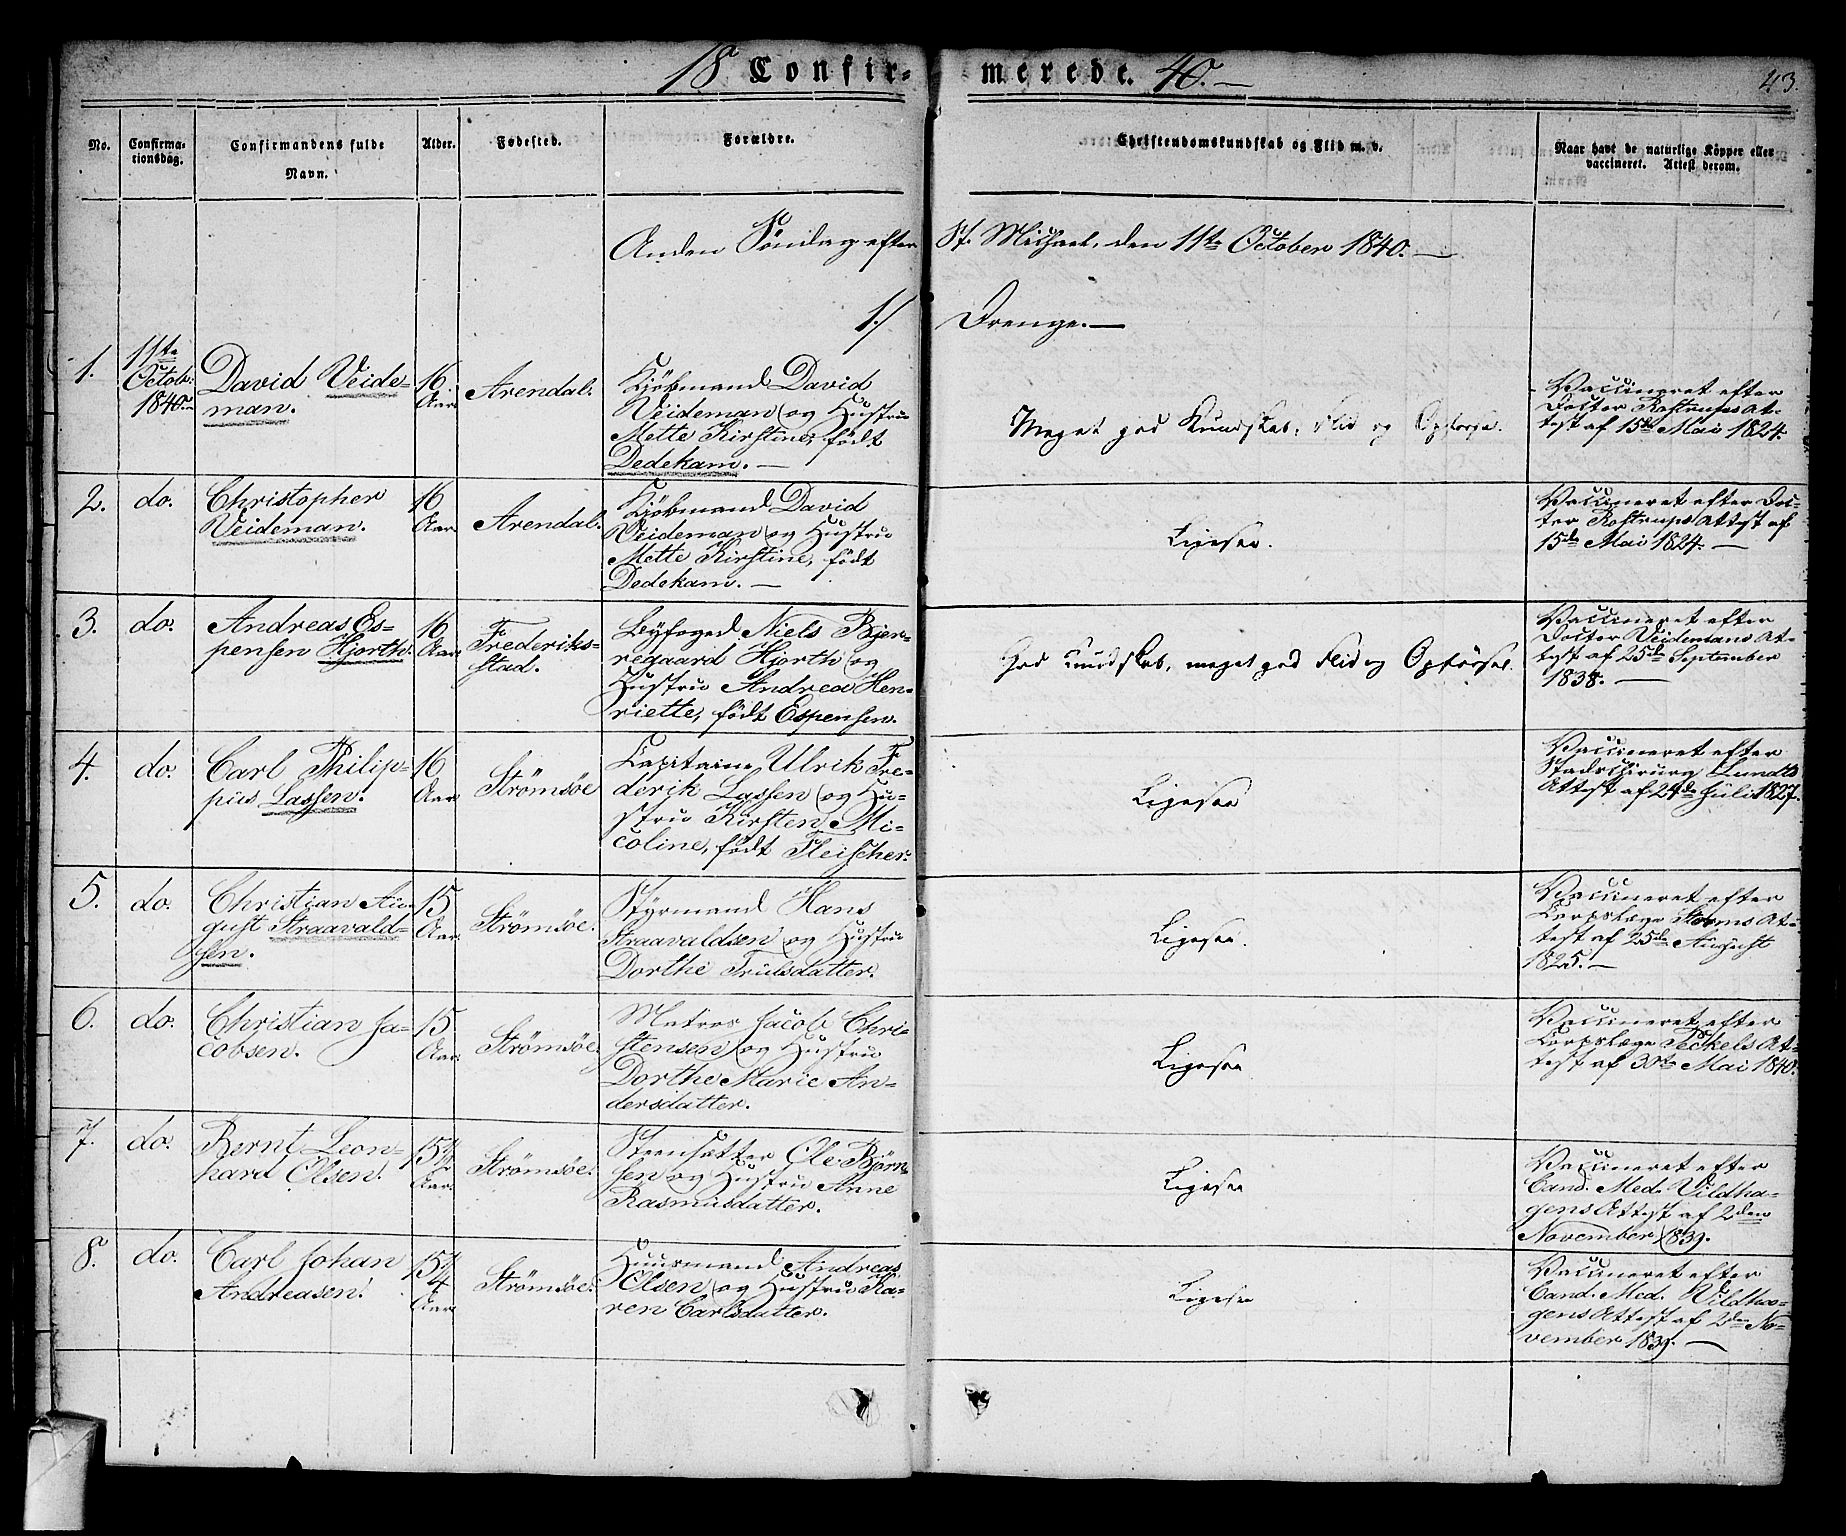 18 Confir- merede. 40.—
43.
No.
Confirma-
tionsdag.
Confirmandens fulde
Navn.
Alder.
Fødested.
Forældre.
Christendomskundskab og Flid m. v.
Naar havt de naturlige Köpper eller
vaccineret. Attest derom.
Anden Söndag efter St. Michael, den 11te October 1840.—
1./ Drenge.—
1.
11te
Octob:
1840.
David Veide-
man.
16.
Aar
Arendal.
Kjöbmand David
Veideman og Hustru
Mette Kirstine, födt
Dedekam.—
Meget god Kundskab, Flid og Opförsel.
Vaccineret efter
Doctor Rostrups At-
test af 15de Mai 1824.
2.
do.
Christopher
Veideman.
16
Aar
Arendal.
Kjöbmand David
Veideman og Hustru
Mette Kirstine, födt
Dedekam.—
Ligesaa.
Vaccineret efter Doc-
tor Rostrups Attest af
15de Mai 1824.—
3.
do.
Andreas Es-
pensen Hjorth.
16
Aar
Frederiks-
stad.
Byfoged Niels Bjer-
regaard Hjorth og
Hustru Andrea Hen-
riette, födt Espensen.
God Kundskab, meget god Flid og Opförsel.
Vaccineret efter
Doctor Veidemans At-
test af 25de September
1838.—
4.
do.
Carl Philip-
pus Lassen.
16
Aar
Strömsöe
Capitaine Ulrik Fre-
derik Lassen og Hu-
stru Kirsten Mi-
coline, födt Fleischer.
Ligesaa
Vaccineret efter
Stadschirurg Lundts
Attest af 24de Juli 1827.
5.
do.
Christian Au-
gust Straavald-
sen.
15
Aar.
Strömsöe.
Styrmand Hans
Straavaldsen og Hustru
Dorthe Trulsdatter.
Ligesaa.
Vaccineret efter
Corpslæge Storms At-
test af 25de August
1825.—
6.
do.
Christian Ja-
cobsen.
15
Aar.
Strömsöe.
Matros Jacob Chri-
stensen og Hustru
Dorthe Marie An-
dersdatter.
Ligesaa
Vaccineret efter
Corpslæge Jeckels At-
test af 30te Mai 1840.
7.
do.
Bernt Leon-
hard Olsen.
15
Aar.
Strömsöe.
Steensætter Ole Björn-
sen og Hustru Anne
Rasmusdatter.
Ligesaa
Vaccineret efter
Cand. Med. Vildha-
gens Attest af 2den
November 1839.
8.
do.
Carl Johan
Andreasen.
15 1/4
Aar
Strömsöe.
Huusmand Andreas
Olsen og Hustru Ka-
ren Carlsdatter.
Ligesaa
Vaccineret efter
Cand. Med. Vildha-
gens Attest af 2den No-
vember 1839.—